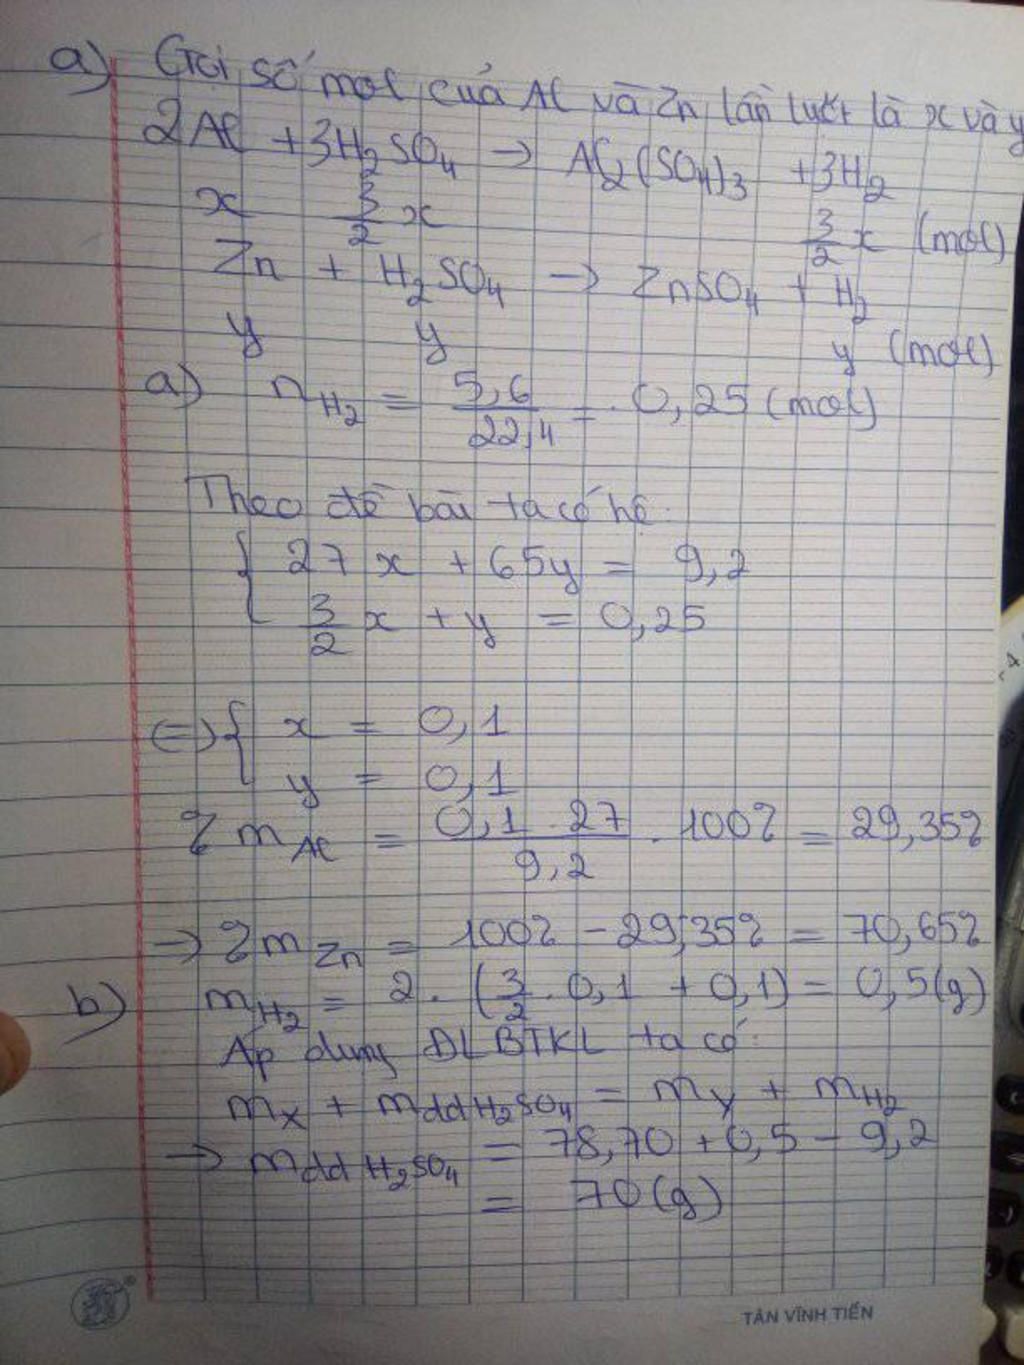 a) Gọi số mol của Al và Zn lần lượt là x và y
2Al + 3H₂SO₄ → Al₂(SO₄)₃ + 3H₂
x 3/2 x 3/2 x (mol)
Zn + H₂SO₄ → ZnSO₄ + H₂
y y y (mol)
a) n H₂ = 5,6/22,4 = 0,25 (mol)
Theo đề bài ta có hệ:
{ 27x + 65y = 9,2
3/2 x + y = 0,25
(=) { x = 0,1
y = 0,1
% m Al = 0,1 . 27/9,2 . 100% = 29,35%
→ % m Zn = 100% - 29,35% = 70,65%
b) m H₂ = 2 . (3/2 . 0,1 + 0,1) = 0,5 (g)
Áp dụng ĐLBTKL ta có:
m X + m dd H₂SO₄ = m Y + m H₂
→ m dd H₂SO₄ = 78,70 + 0,5 - 9,2
= 70 (g)
TÂN VĨNH TIẾN